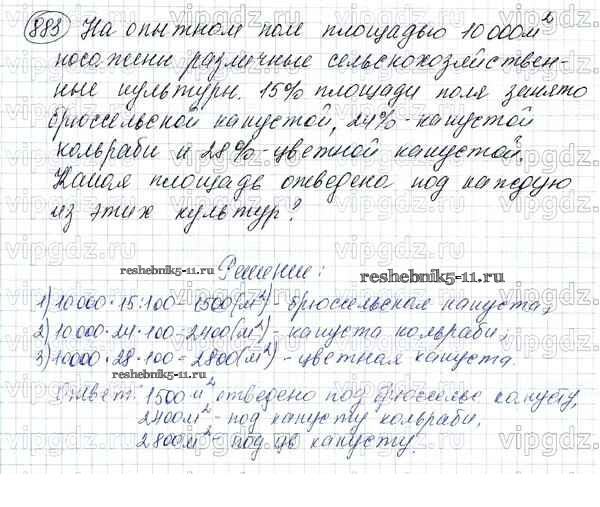 883 На опытном поле площадью 10 000 м²
посажены различные сельскохозяйствен-
ные культуры. 15% площади поля занято
брюссельской капустой, 24% - капустой
кольраби и 28% - цветной капустой.
Какая площадь отведена под каждую
из этих культур?
Решение:
reshebnik5-11.ru
reshebnik5-11.ru
1) 10 000 · 15 : 100 = 1500 (м²) - брюссельская капуста;
2) 10 000 · 24 : 100 = 2400 (м²) - капуста кольраби;
3) 10000 · 28 : 100 = 2800 (м²) - цветная капуста.
reshebnik5-11.ru
Ответ: 1500 м² отведено под брюссельс капусту,
2400 м² - под капусту кольраби,
2800 м² - под цв капусту.
reshebnik5-11.ru
vipgdz.ru